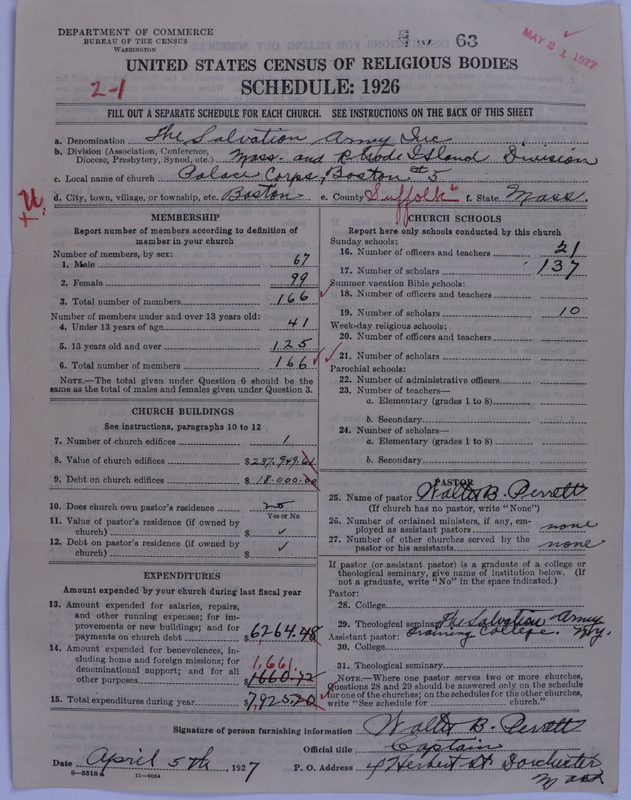 DEPARTMENT OF COMMERCE
BUREAU OF THE CENSUS
WASHINGTON
63
MAY 21 1927
UNITED STATES CENSUS OF RELIGIOUS BODIES
SCHEDULE: 1926
2-1
FILL OUT A SEPARATE SCHEDULE FOR EACH CHURCH. SEE INSTRUCTIONS ON THE BACK OF THIS SHEET
a. Denomination The Salvation Army Inc
b. Division (Association, Conference, Diocese, Presbytery, Synod, etc.) Mass. and Rhode Island Division
c. Local name of church Palace Corps, Boston #5
d. City, town, village, or township, etc. Boston e. County Suffolk f. State Mass.
MEMBERSHIP
Report number of members according to definition of member in your church
Number of members, by sex:
1. Male 67
2. Female 99
3. Total number of members 166
Number of members under and over 13 years old:
4. Under 13 years of age 41
5. 13 years old and over 125
6. Total number of members 166
NOTE.—The total given under Question 6 should be the same as the total of males and females given under Question 3.
CHURCH BUILDINGS
See instructions, paragraphs 10 to 12
7. Number of church edifices 1
8. Value of church edifices $237,949.61
9. Debt on church edifices $18.000.00
10. Does church own pastor's residence no
Yes or No
11. Value of pastor's residence (if owned by church) $ ✓
12. Debt on pastor's residence (if owned by church) $ ✓
EXPENDITURES
Amount expended by your church during last fiscal year
13. Amount expended for salaries, repairs, and other running expenses; for improvements or new buildings; and for payments on church debt $6264.48
14. Amount expended for benevolences, including home and foreign missions; for denominational support; and for all other purposes 1,661. $1660.72
15. Total expenditures during year $7,925.20
CHURCH SCHOOLS
Report here only schools conducted by this church
Sunday schools:
16. Number of officers and teachers 21
17. Number of scholars 137
Summer vacation Bible schools:
18. Number of officers and teachers
19. Number of scholars 10
Week-day religious schools:
20. Number of officers and teachers
21. Number of scholars
Parochial schools:
22. Number of administrative officers
23. Number of teachers—
a. Elementary (grades 1 to 8)
b. Secondary
24. Number of scholars—
a. Elementary (grades 1 to 8)
b. Secondary
PASTOR
25. Name of pastor Walter B. Perrett
(If church has no pastor, write "None")
26. Number of ordained ministers, if any, employed as assistant pastors none
27. Number of other churches served by the pastor or his assistants none
If pastor (or assistant pastor) is a graduate of a college or theological seminary, give name of institution below. (If not a graduate, write "No" in the space indicated.)
Pastor:
28. College
29. Theological seminary The Salvation Army Training College. N.Y.
Assistant pastor:
30. College
31. Theological seminary
NOTE.—Where one pastor serves two or more churches, Questions 28 and 29 should be answered only on the schedule for one of the churches; on the schedules for the other churches, write "See schedule for church."
Signature of person furnishing information Walter B. Perrett
Official title Captain
Date April 5th, 1927 P. O. Address 4 Herbert St Dorchester Mass
8-5518 11-9054